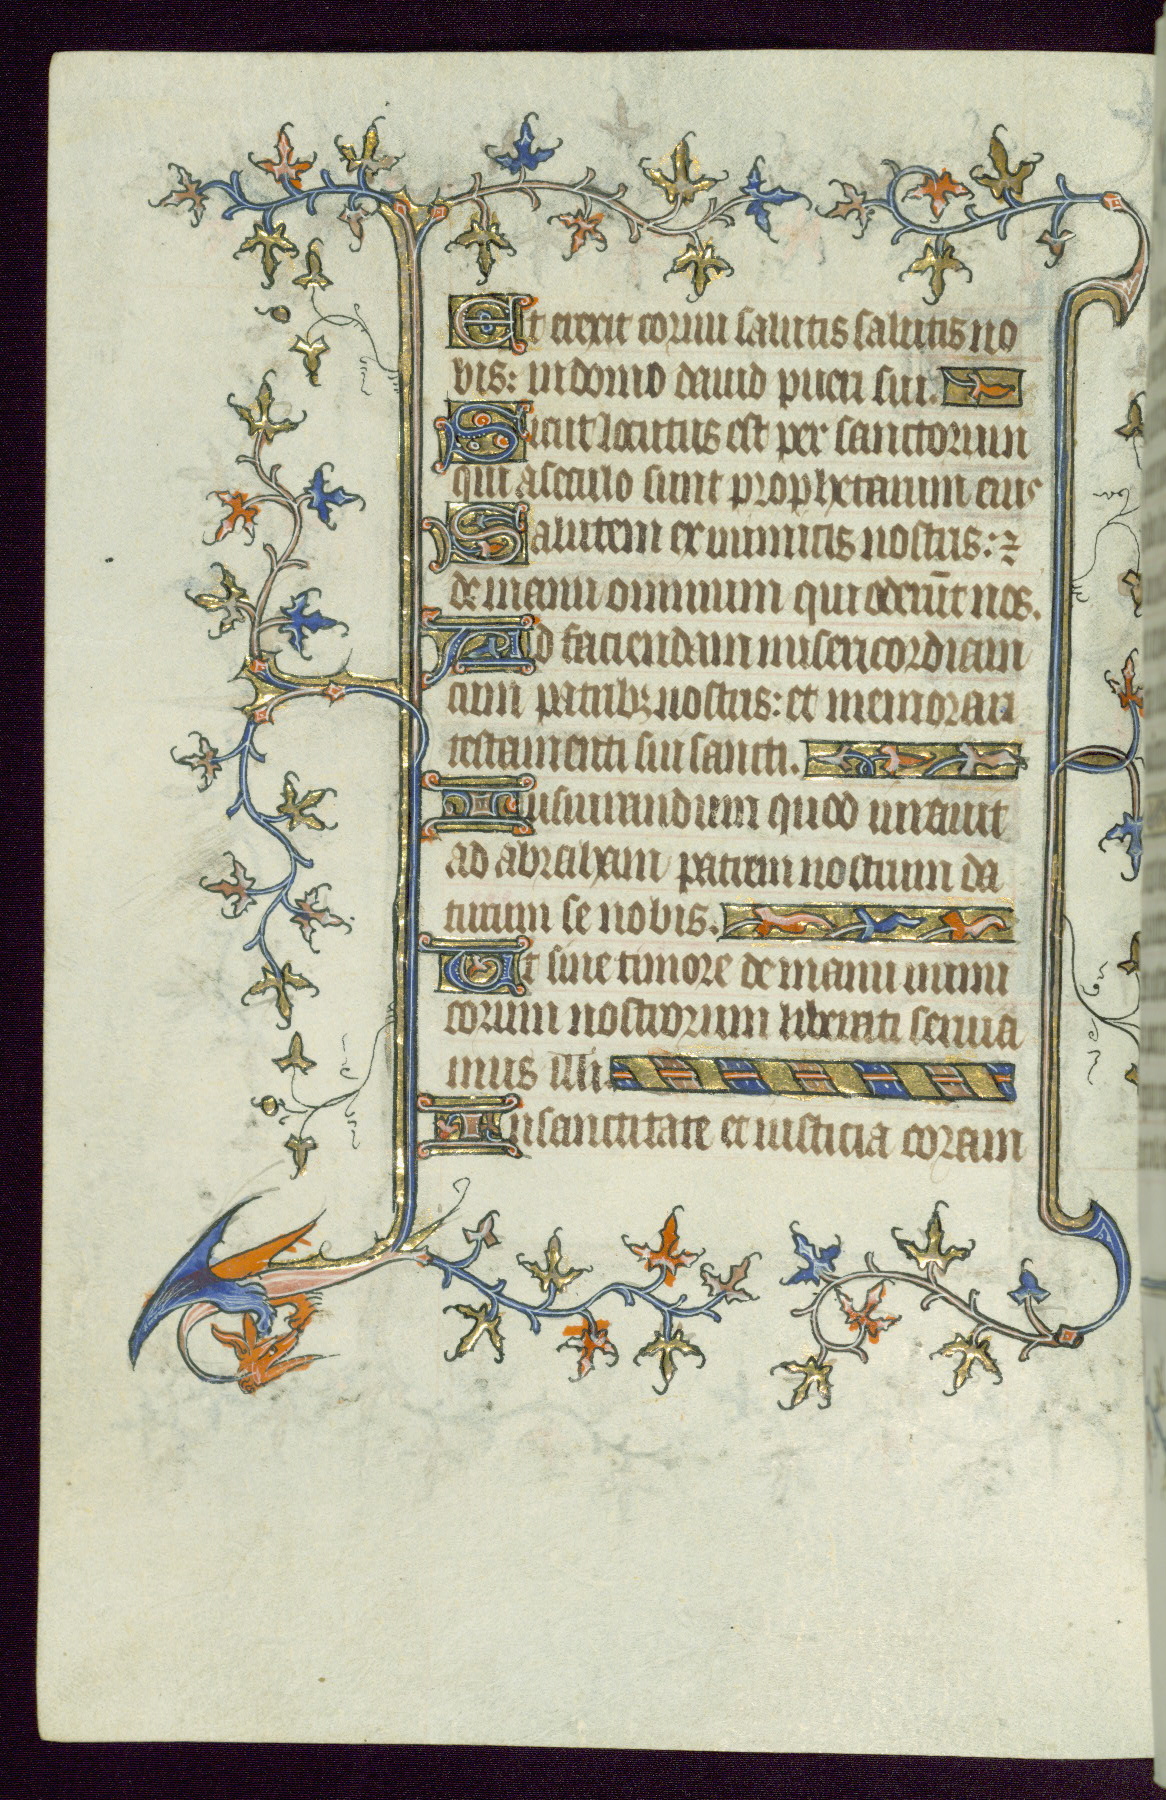 Et erexit cornu salutis salutis no
bis: in domo dauid pueri sui.
Sicut locutus est per sanctorum
qui a seculo sunt prophetarum eius
Salutem ex inimicis nostris: ⁊
de manu omnium qui oderūt nos.
Ad faciendam misericordiam
cum patribꝫ nostris: et memorari
testamenti sui sancti.
Iusiurandum quod iurauit
ad abraham patrem nostrum da
turum se nobis.
Ut sine timore de manu inimi
corum nostrorum liberati seruia
mus illi.
In sanctitate et iusticia coram